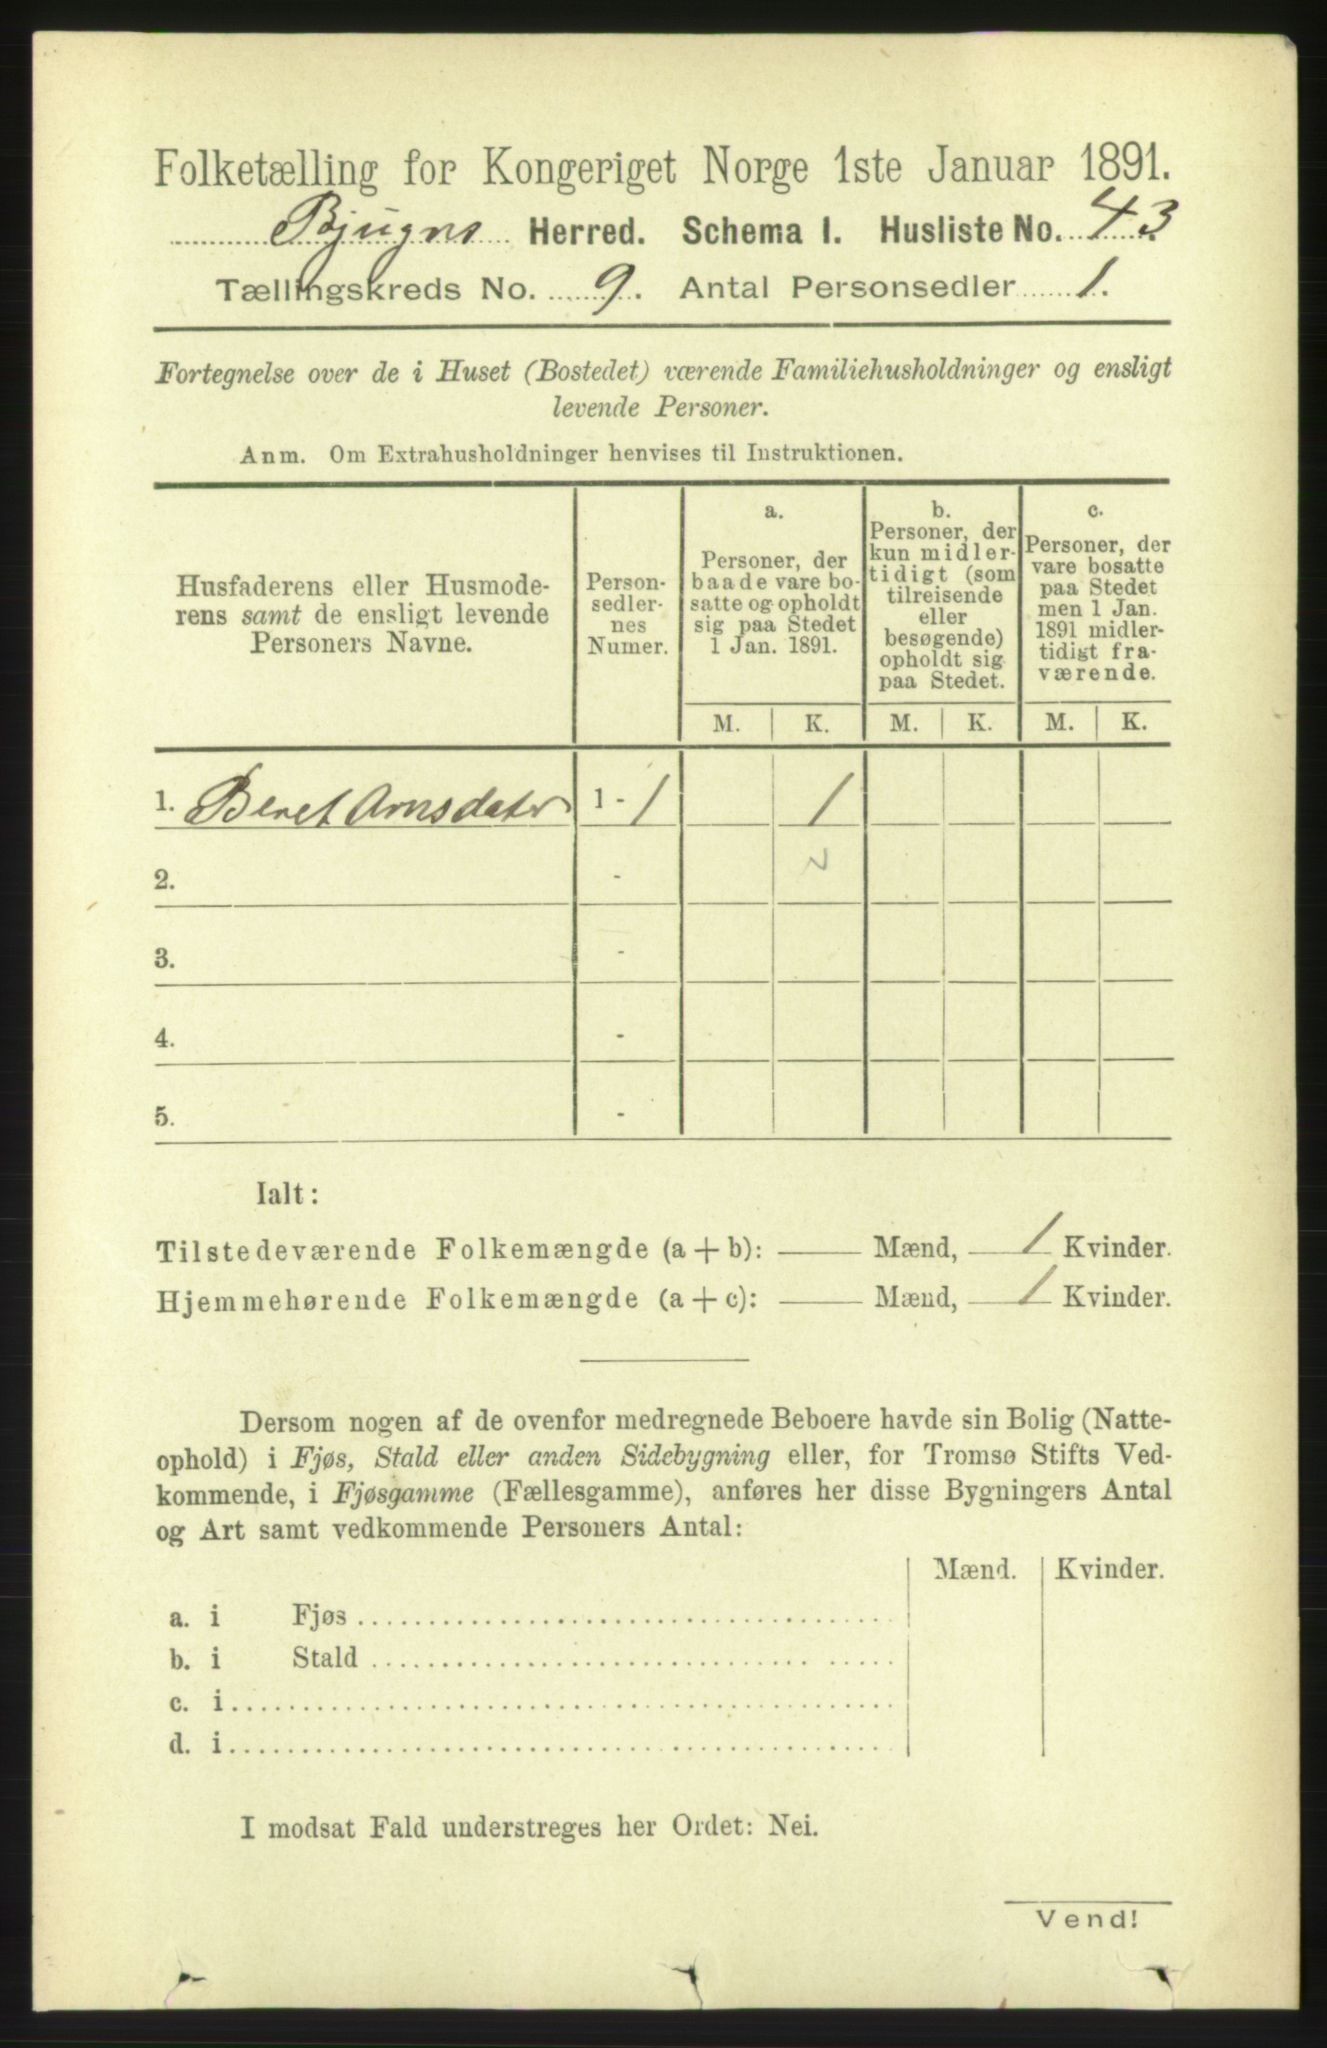 Folketælling for Kongeriget Norge 1ste Januar 1891.
Bjugns Herred. Schema I. Husliste No. 43
Tællingskreds No. 9. Antal Personsedler 1.
Fortegnelse over de i Huset (Bostedet) værende Familiehusholdninger og ensligt
levende Personer.
Anm. Om Extrahusholdninger henvises til Instruktionen.
Husfaderens eller Husmode-
rens samt de ensligt levende
Personers Navne.
Person-
sedler-
nes
Numer.
a.
Personer, der
baade vare bo-
satte og opholdt
sig paa Stedet
1 Jan. 1891.
b.
Personer, der
kun midler-
tidigt (som
tilreisende
eller
besøgende)
opholdt sig
paa Stedet.
c.
Personer, der
vare bosatte
paa Stedet
men 1 Jan.
1891 midler-
tidigt fra-
værende.
M. K. M. K. M. K.
1. Beret Arnsdater 1 - 1 1
2. - 2
3. -
4. -
5. -
Ialt:
Tilstedeværende Folkemængde (a + b): Mænd, 1 Kvinder.
Hjemmehørende Folkemængde (a + c): Mænd, 1 Kvinder.
Dersom nogen af de ovenfor medregnede Beboere havde sin Bolig (Natte-
ophold) i Fjøs, Stald eller anden Sidebygning eller, for Tromsø Stifts Ved-
kommende, i Fjøsgamme (Fællesgamme), anføres her disse Bygningers Antal
og Art samt vedkommende Personers Antal:
Mænd. Kvinder.
a. i Fjøs
b. i Stald
c. i
d. i
I modsat Fald understreges her Ordet: Nei.
Vend!